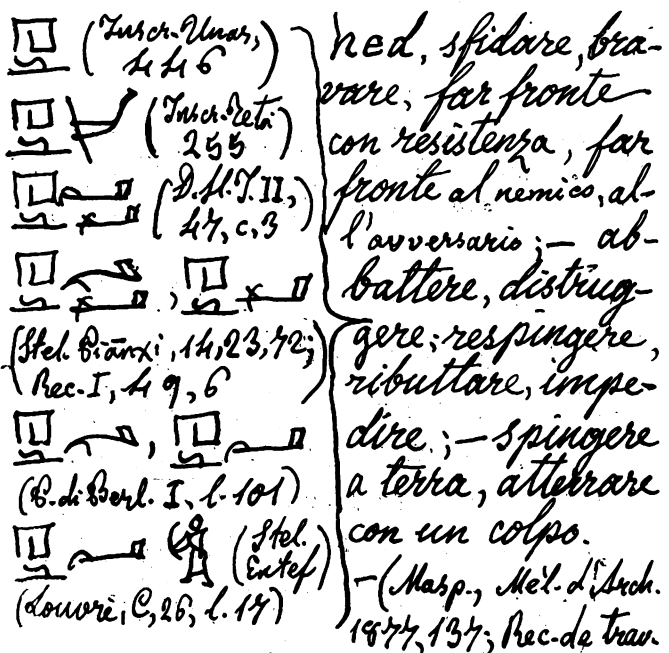 (Inscr. Unas,
446)
(Inscr. Teta
255)
(D. H. I. II,
47, c, 3)
(Stel. Piānχi, 14, 23, 72;
Rec. I, 49, 6)
(P. di Berl. I, l. 101)
(Stel.
Entef)
(Louvre, C, 26, l. 17)
hed, sfidare, bra-
vare, far fronte
con resistenza, far
fronte al nemico, al-
l'avversario; — ab-
battere, distrug-
gere; respingere,
ributtare, impe-
dire; — spingere
a terra, atterrare
con un colpo.
— (Masp., Mél. d'Arch.
1877, 137; Rec. de trav.